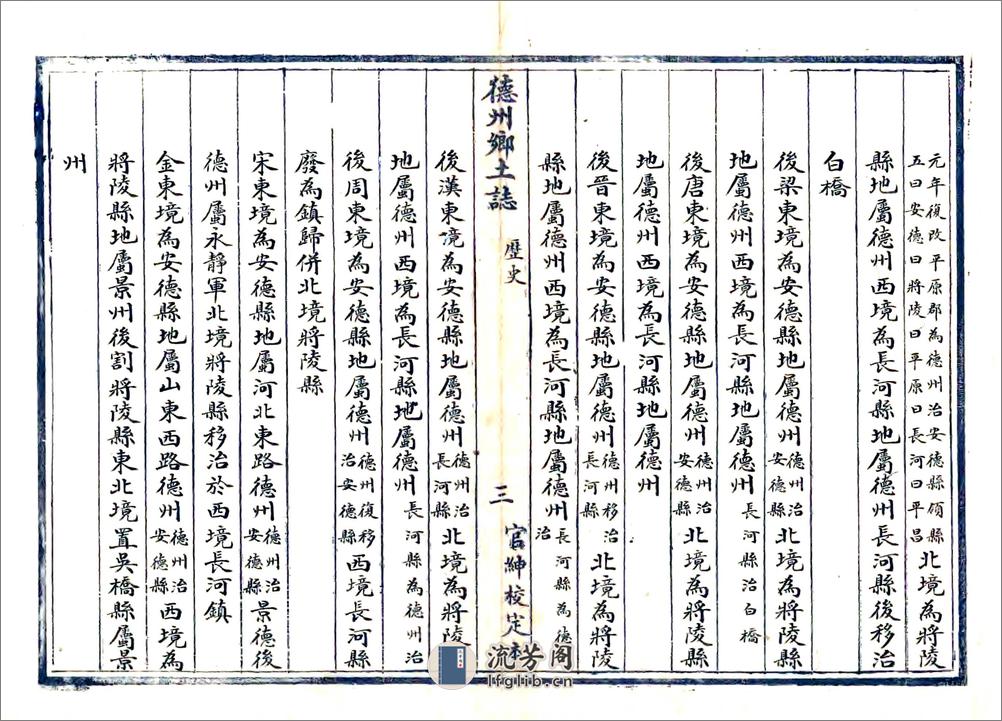 元年復改平原郡為德州治安德縣領縣五曰安德曰將陵曰平原曰長河曰平昌北境為將陵
縣地屬德州西境為長河縣地屬德州長河縣後移治
白橋
後梁東境為安德縣地屬德州德州治安德縣北境為將陵縣
地屬德州西境為長河縣地屬德州長河縣治白橋
後唐東境為安德縣地屬德州德州治安德縣北境為將陵縣
地屬德州西境為長河縣地屬德州
後晉東境為安德縣地屬德州德州縣移長河縣治北境為將陵
縣地屬德州西境為長河縣地屬德州長河縣為德治
德州鄉土誌 歷史 三 官紳校定本
後漢東境為安德縣地屬德州德州治長河縣北境為將陵
地屬德州西境為長河縣地屬德州長河縣為德州治
後周東境為安德縣地屬德州德州復移治安德縣西境長河縣
廢為鎮歸併北境將陵縣
宋東境為安德縣地屬河北東路德州德州治安德縣景德後
德州屬永靜軍北境將陵縣移治於西境長河鎮
金東境為安德縣地屬山東西路德州德州治安德縣西境為
將陵縣地屬景州後割將陵縣東北境置吳橋縣屬景
州
流芳阁
lfglib.cn